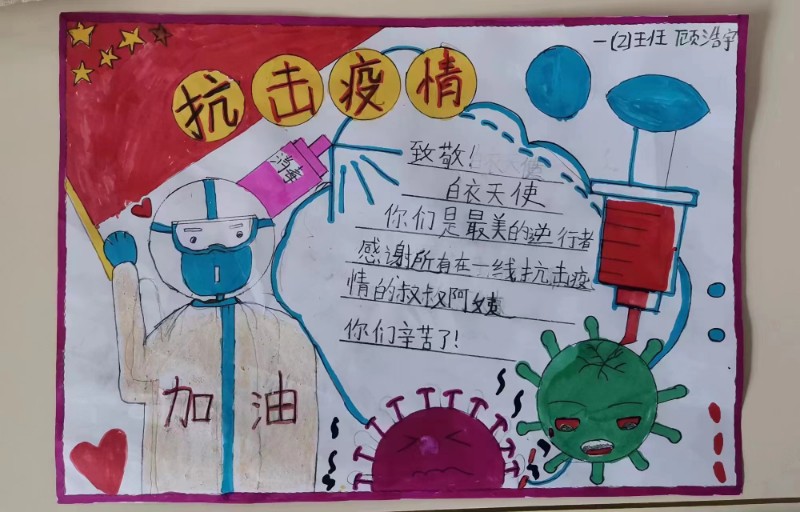 一(2)王任 顾浩宇
抗击疫情
消毒
致敬!
白衣天使
你们是最美的逆行者
感谢所有在一线抗击疫
情的叔叔阿姨
你们辛苦了!
加油